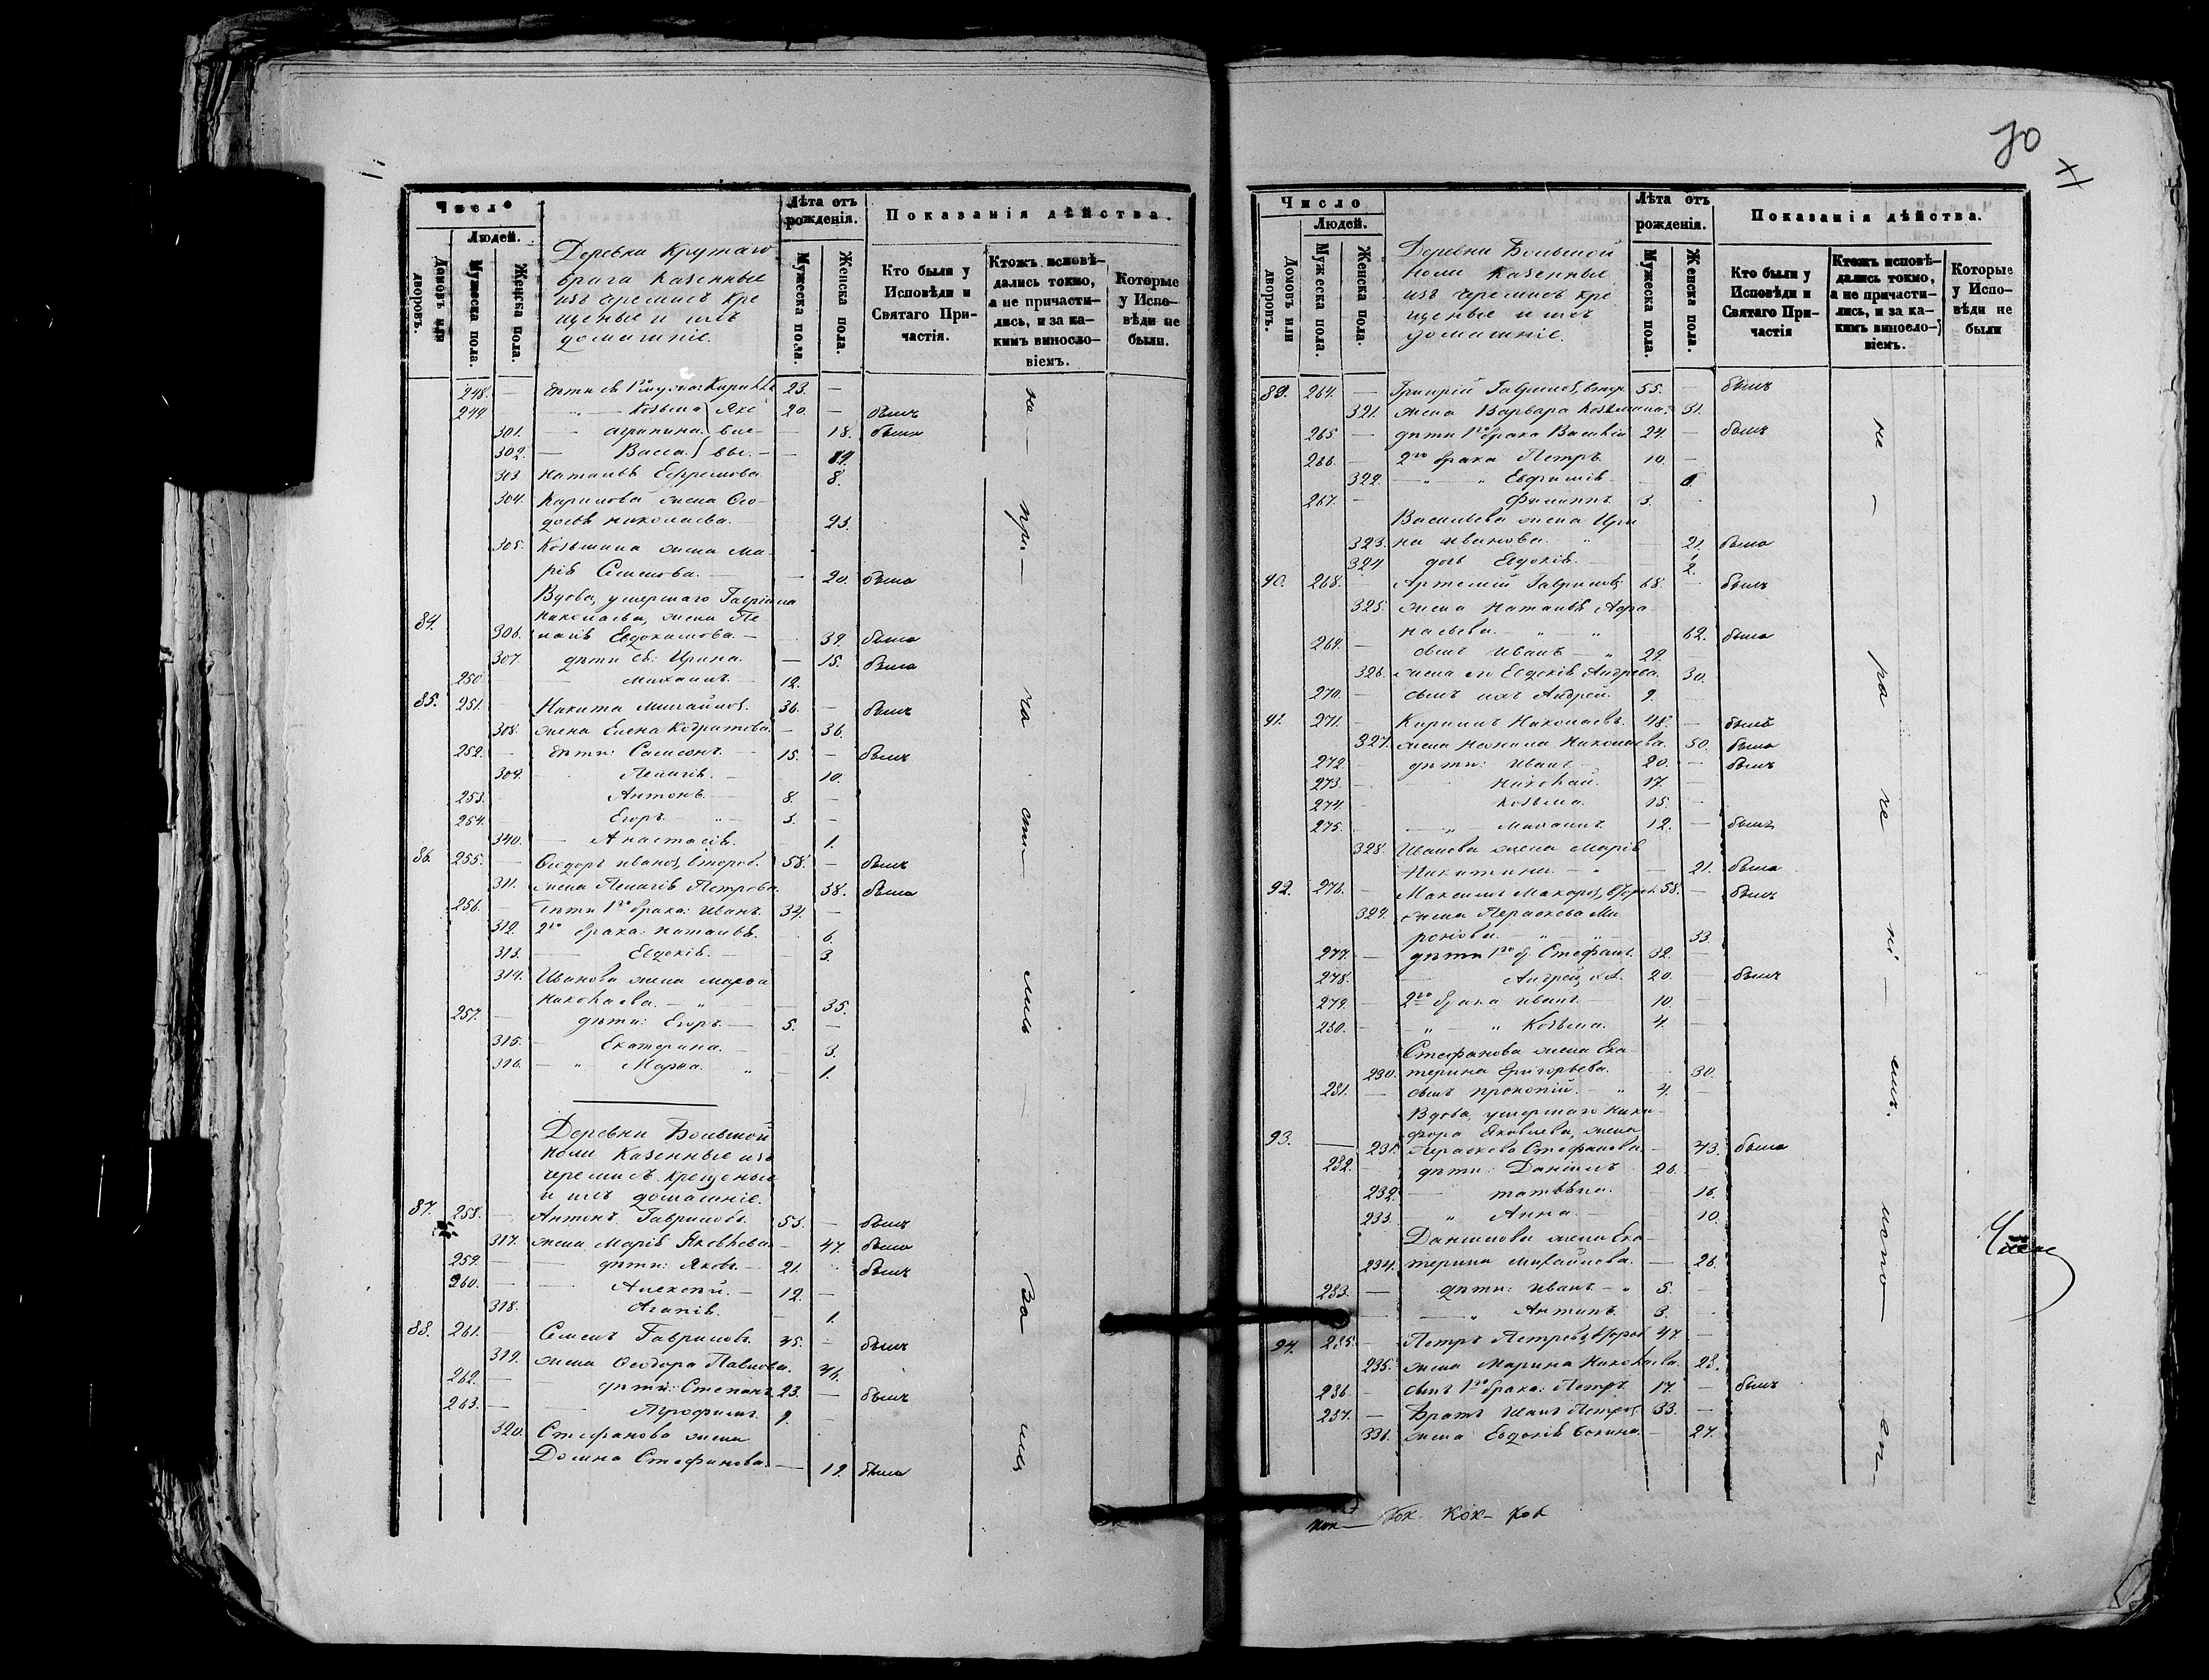 Число
Людей.
Домовъ или дворовъ.
Мужеска пола.
Женска пола.
Деревни Крутаго
врага казенные
изъ черемисъ кре
щеные и ихъ
домашніе.
Лѣта отъ рожденія.
Мужеска пола.
Женска пола.
Показанія дѣйства.
Кто были у Исповѣди и Святаго Причастія.
Ктожъ исповѣдались токмо, а не причастились, и за какимъ винословіемъ.
Которые у Исповѣди не были.
248. — 23. —
249 — Козьма 20. — былъ
301. — Агрипина — 18. была
302. — Васса
303 Наталья Ефремова 8.
304. Кирилова жена Ѳео-
досья Николаева. — 23.
305. Козьмина жена Ма-
рія Семенова. — 20. была
Вдова, умершаго Гавріила
84. Николаева, жена Пе
306. лагія Евдокимова. — 39. была
307. дѣти ея: Ирина. — 15. была
250 — Михаилъ — 12.
85. 251. — Никита Михайловъ. 36. — былъ
308. жена Елена Кодратова. — 36.
252. — дѣти: Самсонъ. — 15. — былъ
309. Пелагія. — 10.
253. — Антонъ. — 8. —
254. — Егоръ. — 3. —
340. — Анастасія. 1.
86. 255. — Ѳеодоръ Ивановъ, второб. 58. — былъ
311. жена Пелагія Петрова. 38. была
256. — дѣти 1го брака: Иванъ. 34. —
312. 2го брака: Наталья. 6.
313. — Евдокія. — 3.
314. Иванова жена Марѳа
Николаева. — 35.
257. — дѣти: Егоръ. — 5. —
315. Екатерина. — 3.
316. — Марѳа. — 1.
Деревни Большой
Ноли казенные изъ
черемисъ крещеные
и ихъ домашніе.
87. 258. — Антонъ Гавриловъ. 53. — былъ
317. жена Марія Яковлева. — 47. была
259. — дѣти: Яковъ. — 21. былъ
260. — Алексѣй. — 12. —
318. Агапія. 1.
88. 261. — Семенъ Гавриловъ. 45. — былъ
319. жена Ѳеодора Павлова. 46.
262. — дѣти: Степанъ. 23. — былъ
263. — Трофимъ. 9. —
320. Стефанова жена
Домна Стефанова. — 19. была
не — при — ча сти — лись — за
70
Число
Людей.
Домовъ или дворовъ.
Мужеска пола.
Женска пола.
Деревни Большой
Ноли казенные
изъ черемисъ кре
щеные и ихъ
домашніе.
Лѣта отъ рожденія.
Мужеска пола.
Женска пола.
Показанія дѣйства.
Кто были у Исповѣди и Святаго Причастія
Ктожъ исповѣдались токмо, а не причастились, и за какимъ винословіемъ.
Которые у Исповѣди не были
89. 264. — Григорій Гавриловъ, втор. 55. — былъ
321. жена Варвара Козьмина. 31.
265 — дѣти 1го брака Василій 24. — былъ
266. — 2го брака Петръ. 10. —
322. — Евфимія — 6.
267. — Филиппъ 3.
Васильева жена Ири
323. на Иванова. 21. была
324 дочь Евдокія. 2.
90. 268. Артемій Гавриловъ 68. — былъ
325. жена Наталья Аѳа
насьева. 62. была
269. — сынъ Иванъ — 29.
326. жена его Евдокія Андреева. 30.
270. — сынъ ихъ Андрей. 9.
91. 271. — Кириллъ Николаевъ. 48. — былъ
327. жена Неонила Николаева. 50. была
272 дѣти: Иванъ 20. — былъ
273. — Николай. 17. —
274 Козьма. 15. —
275. — Михаилъ 12. — былъ
328. Иванова жена Марія
Никитина. — 21. была
92. 276. — Максимъ Макаровъ, второб. 58. — былъ
329. жена Параскева Ми
ронова. 33.
277. — дѣти 1го б. Стефанъ. 32. —
278. — Андрей, 20. — былъ
279. — 2го брака Иванъ. 10 —
280. — Козьма. 4. —
Стефанова жена Ека-
230. терина Григорьева. 30.
281. — сынъ Прокопій. — 4. —
Вдова, умершаго Ники-
фора Яковлева, жена
93. — 231. Параскева Стефанова. — 43. была
282. — дѣти: Даніилъ 26. —
232. — Матвѣна. — 16.
233. Анна. — 10.
Данилова жена Ека-
234. терина Михайлова. — 26.
283. — дѣти: Иванъ — 5. —
— Антипъ. 3. —
94. 285. — Петръ Петровъ, второб. 47. —
235. жена Марина Николаева. 28.
286 — сынъ 1го брака: Петръ. 17. — былъ
287. — Братъ Иванъ Петровъ 33. —
336. жена Евдокія — 27.
не — ра че ні — емъ.